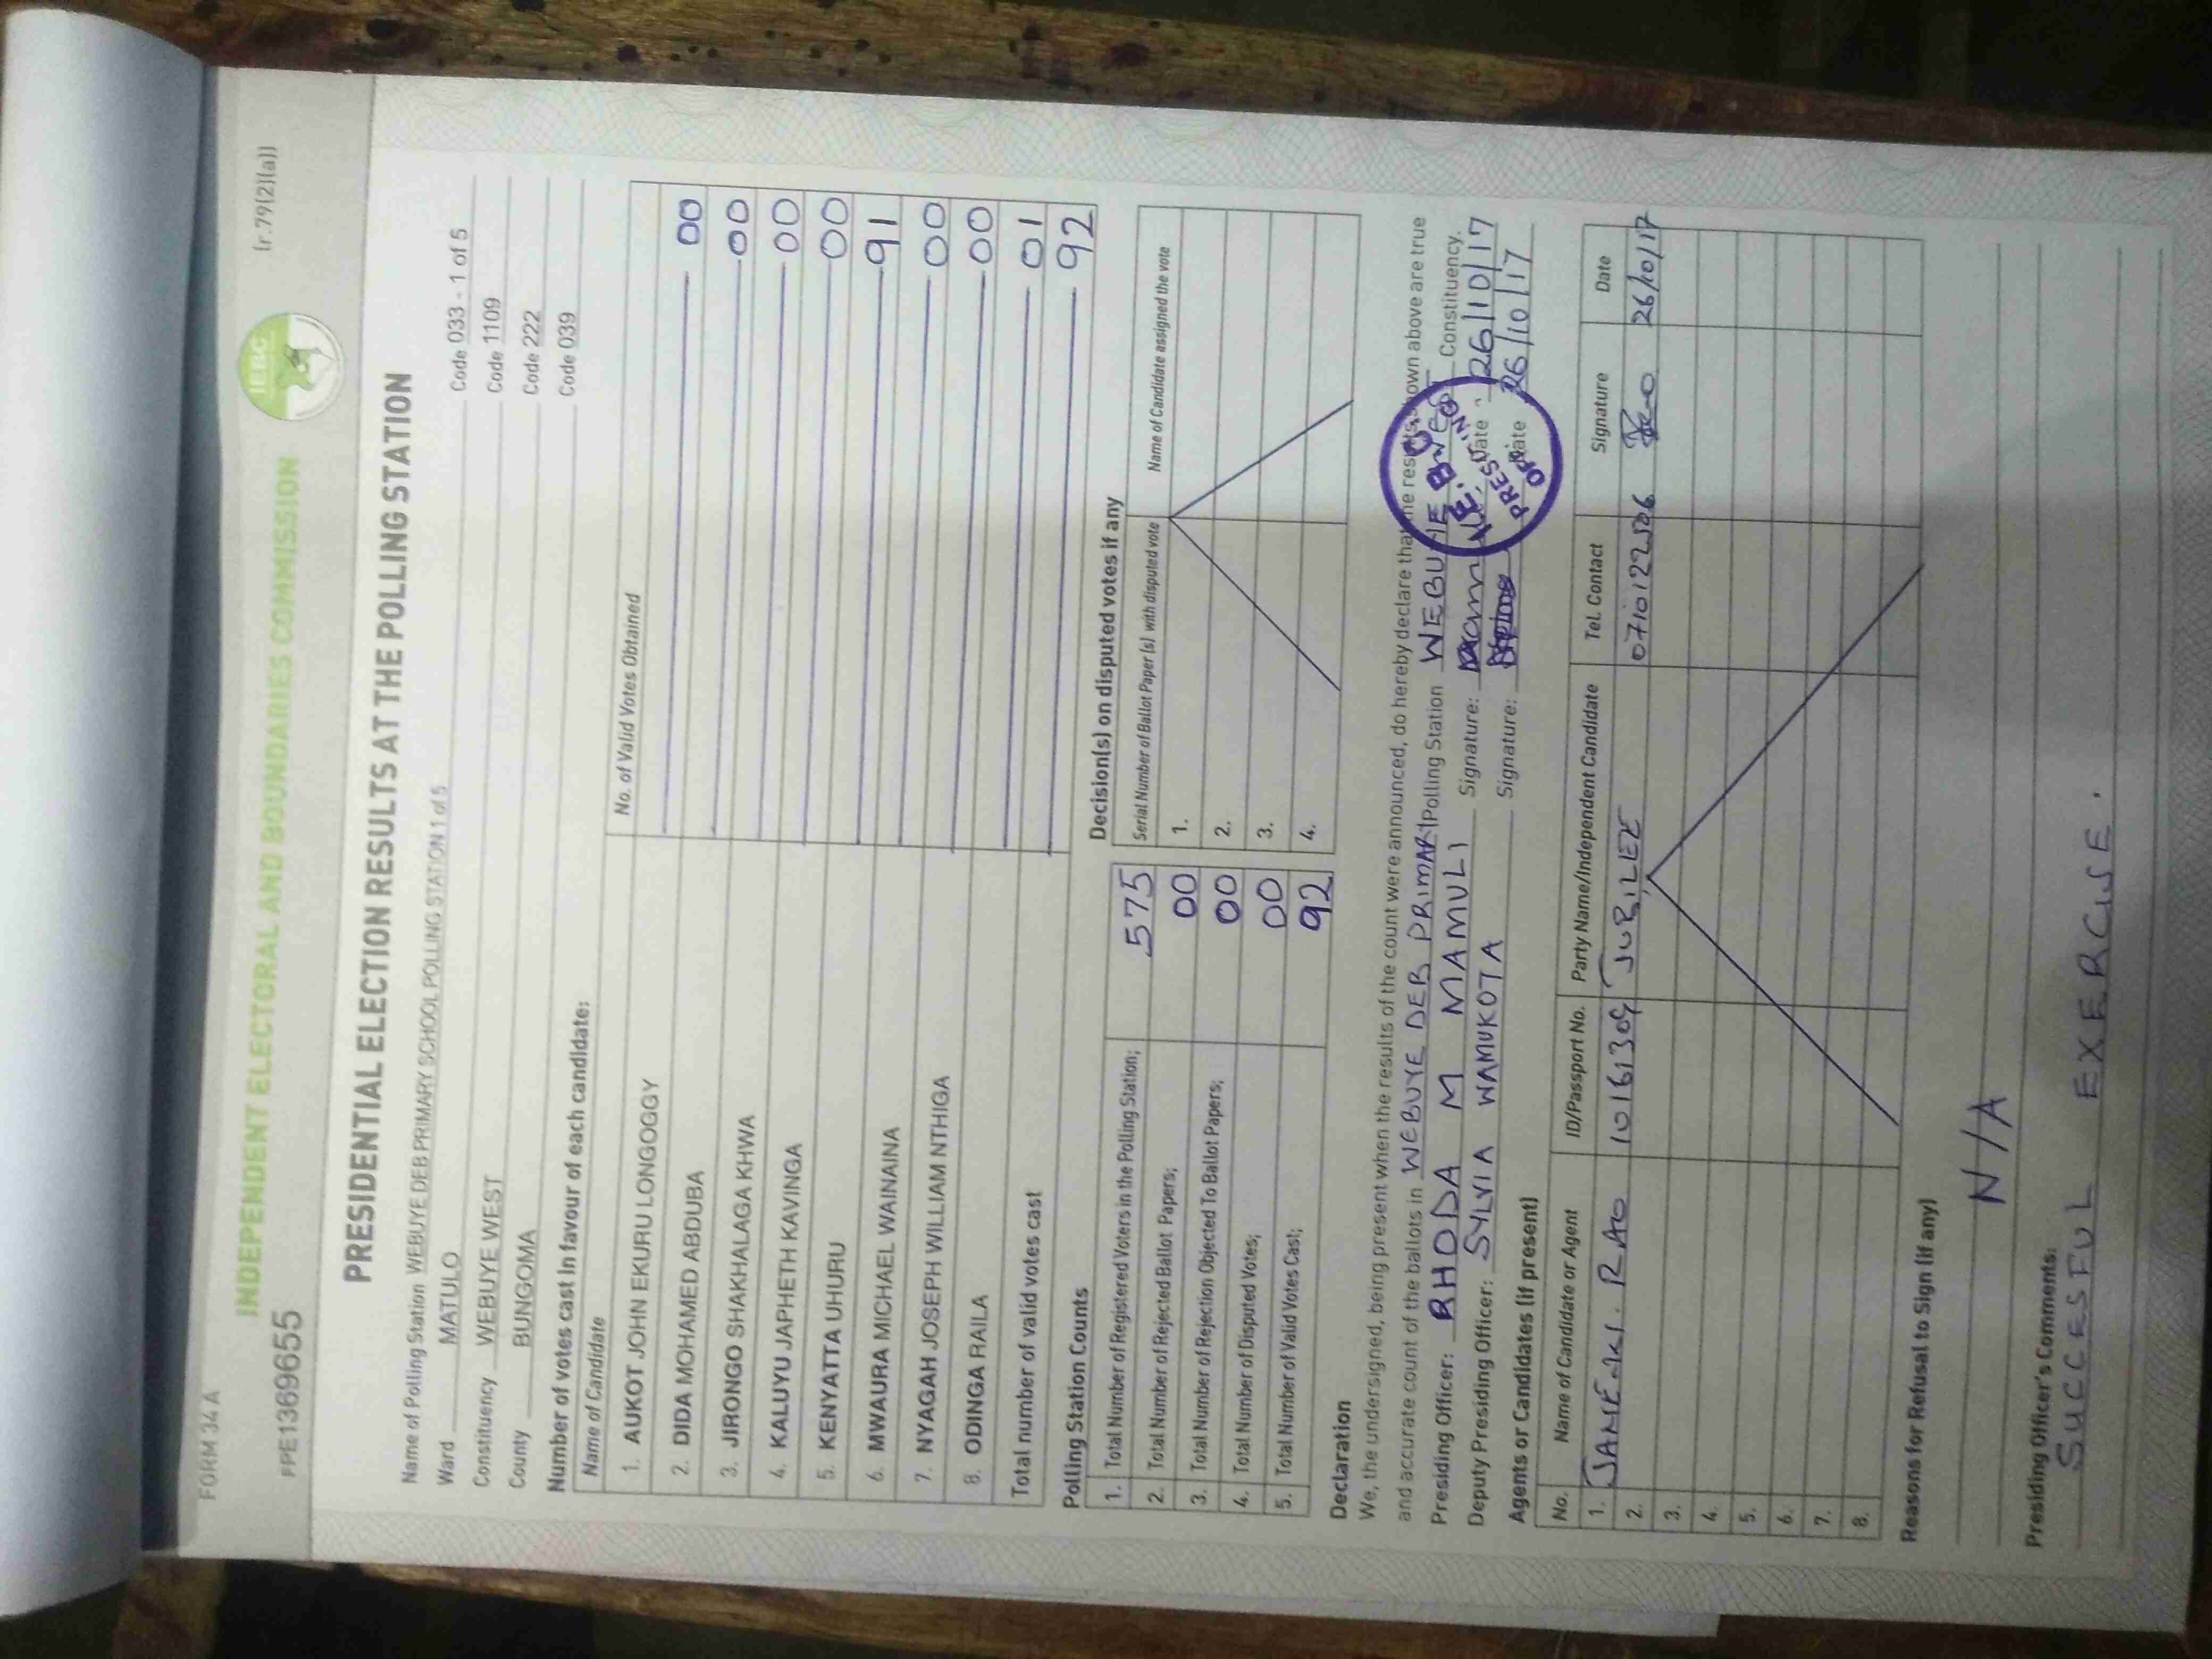 FORM 34 A
(r.79(2)(a))
IEBC
INDEPENDENT ELECTORAL AND BOUNDARIES COMMISSION
PRE1369655
PRESIDENTIAL ELECTION RESULTS AT THE POLLING STATION
Name of Polling Station WEBUYE DEB PRIMARY SCHOOL POLLING STATION 1 of 5 Code 033 - 1 of 5
Ward MATULO Code 1109
Constituency WEBUYE WEST Code 222
County BUNGOMA Code 039
Number of votes cast in favour of each candidate:
Name of Candidate No. of Valid Votes Obtained
1. AUKOT JOHN EKURU LONGOGGY 00
2. DIDA MOHAMED ABDUBA 00
3. JIRONGO SHAKHALAGA KHWA 00
4. KALUYU JAPHETH KAVINGA 00
5. KENYATTA UHURU 91
6. MWAURA MICHAEL WAINAINA 00
7. NYAGAH JOSEPH WILLIAM NTHIGA 00
8. ODINGA RAILA 01
Total number of valid votes cast 92
Polling Station Counts
1. Total Number of Registered Voters in the Polling Station; 575
2. Total Number of Rejected Ballot Papers; 00
3. Total Number of Rejection Objected To Ballot Papers; 00
4. Total Number of Disputed Votes; 00
5. Total Number of Valid Votes Cast; 92
Decision(s) on disputed votes if any
Serial Number of Ballot Paper (s) with disputed vote Name of Candidate assigned the vote
1.
2.
3.
4.
Declaration
We, the undersigned, being present when the results of the count were announced, do hereby declare that the results shown above are true
and accurate count of the ballots in WEBUYE DEB PRIMARY Polling Station WEBUYE WEST Constituency.
Presiding Officer: RHODA M MAMULI Signature: Date 26/10/17
Deputy Presiding Officer: SYLVIA WAMUKOTA Signature: Date 26/10/17
PRESIDING
Agents or Candidates (if present)
No. Name of Candidate or Agent ID/Passport No. Party Name/Independent Candidate Tel. Contact Signature Date
1. JANE K. RAO 10161309 JUBILEE 0710122506 Rao 26/10/17
2.
3.
4.
5.
6.
7.
8.
Reasons for Refusal to Sign (if any)
N/A
Presiding Officer's Comments:
SUCCESFUL EXERCISE.